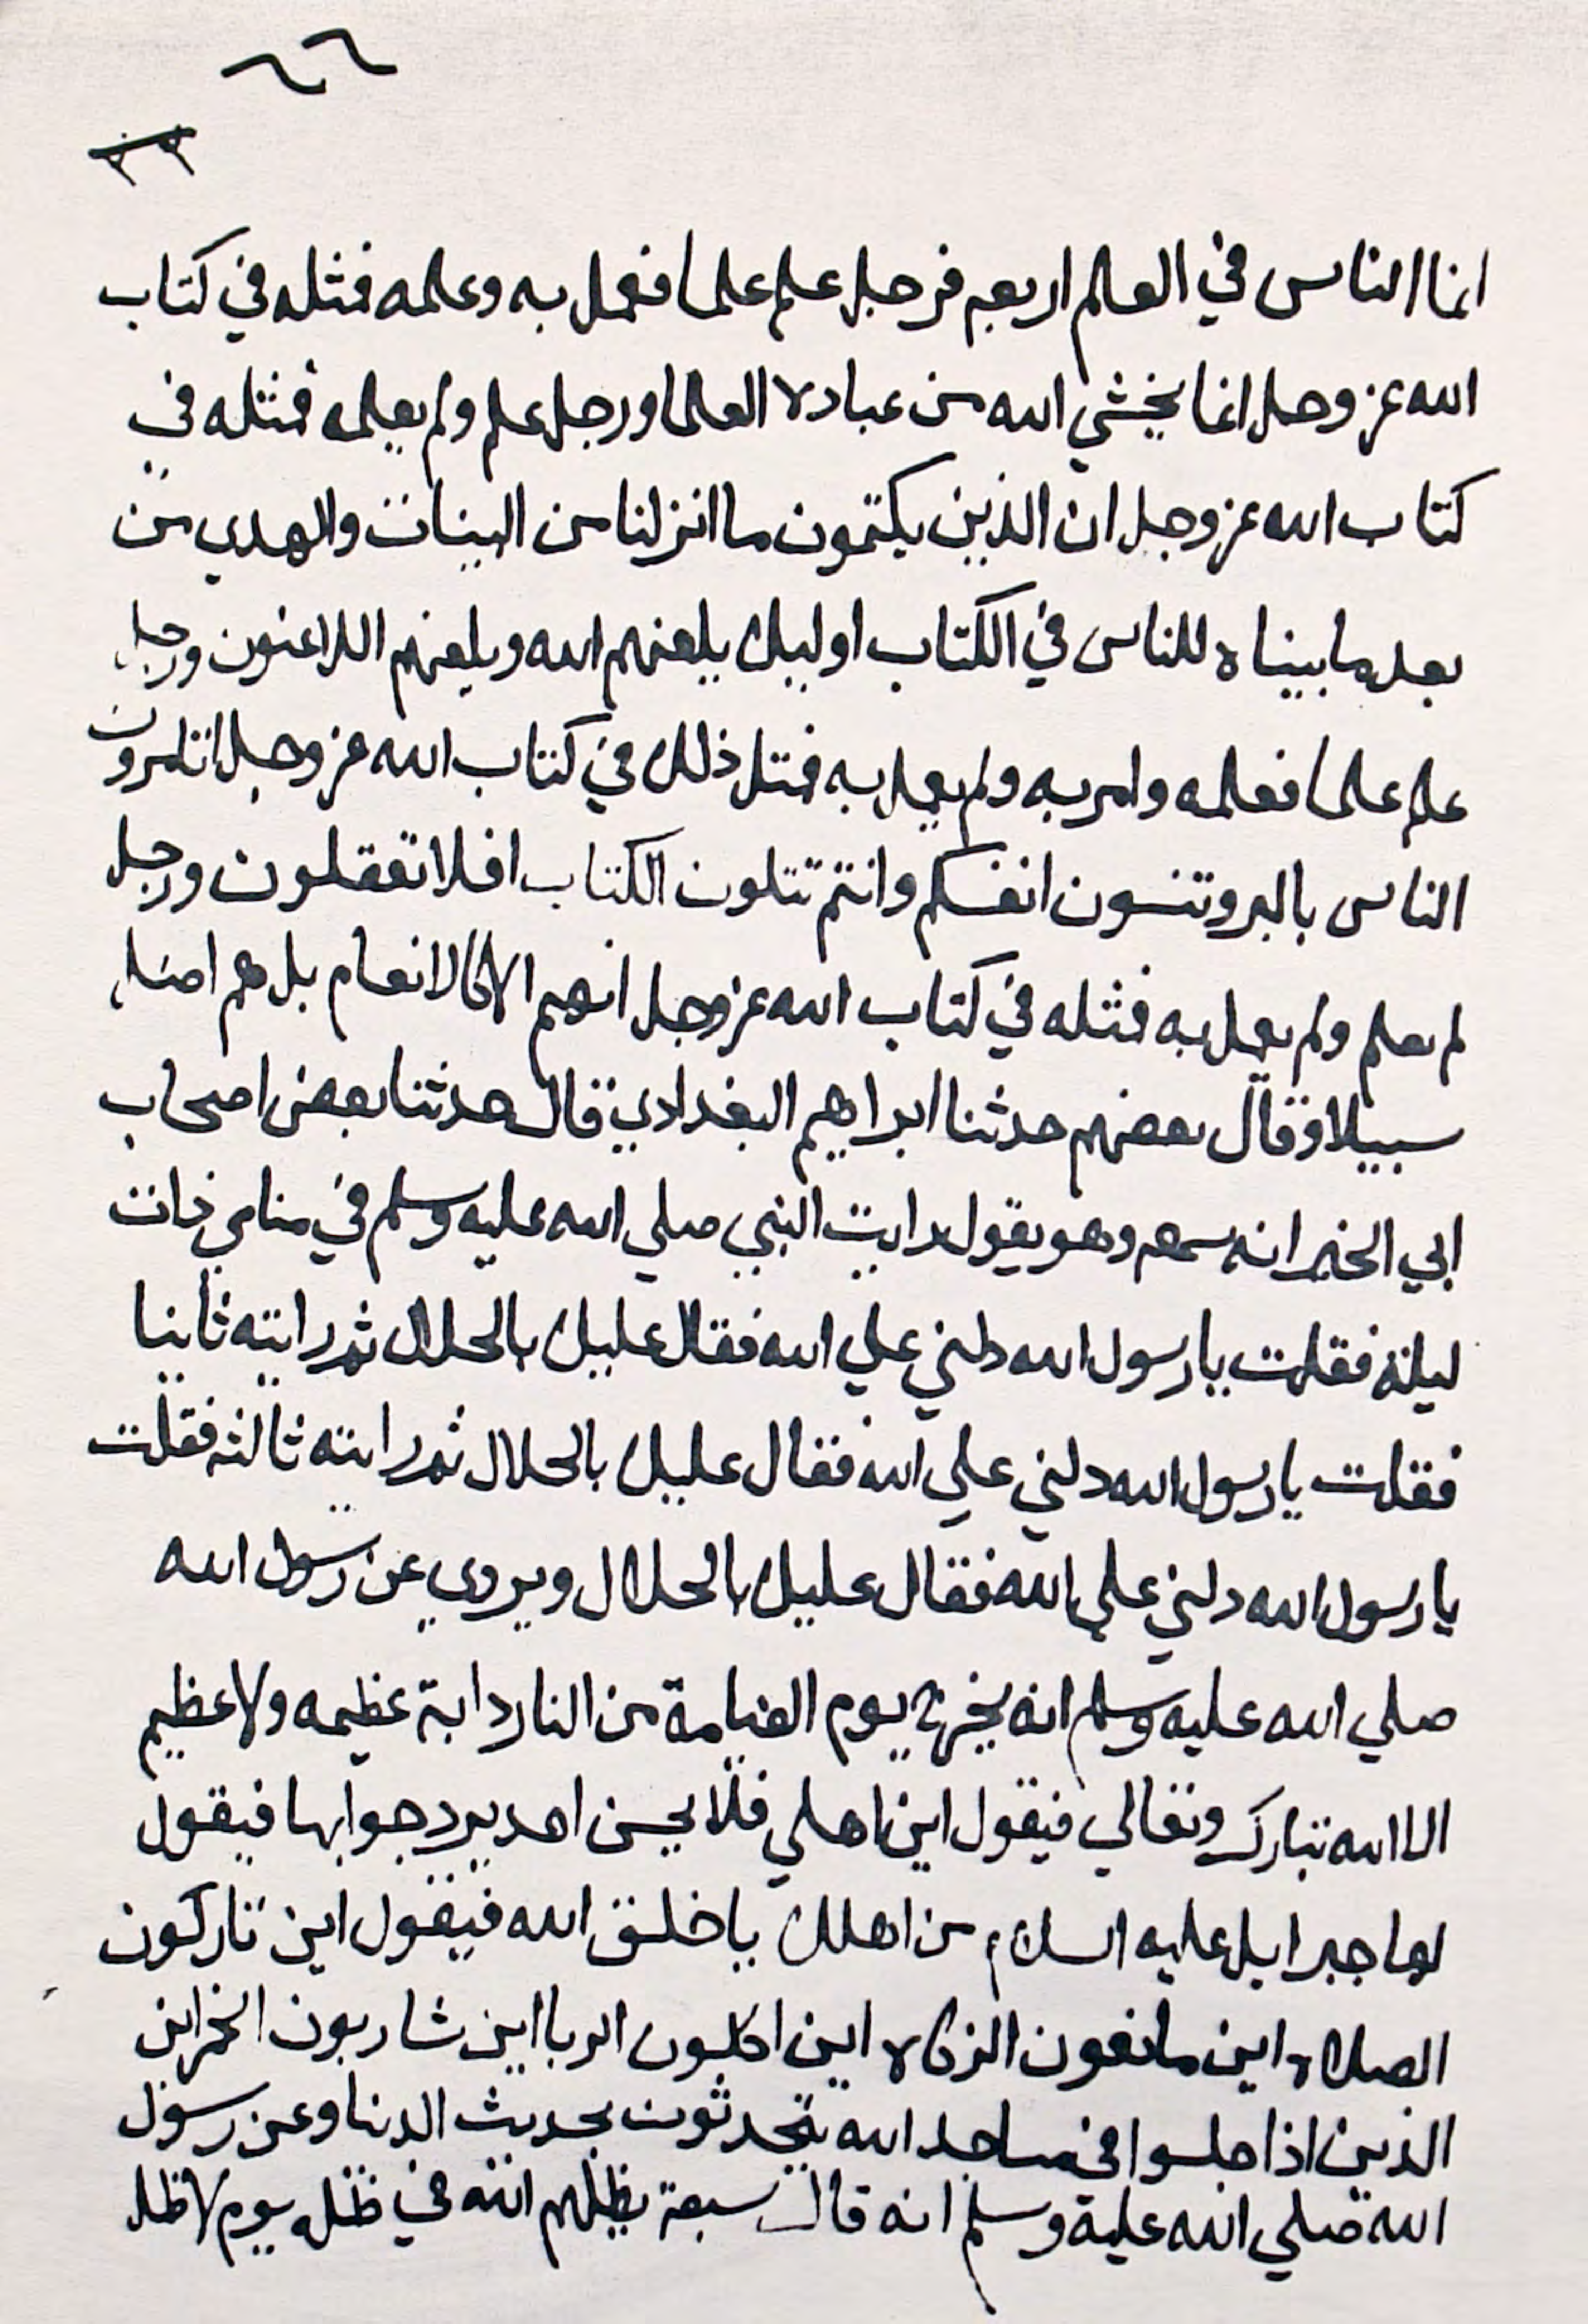 ٦٦
٣٣
انما الناس في العالم اربعه فرجل علم علما فعمل به وعلمه فمثله في كتاب
الله عز وجل انما يخشي الله من عباده العلما ورجل علم ولم يعلمه فمثله في
كتاب الله عز وجل ان الذين يكتمون ما انزلنا من البينات والهدي من
بعد ما بيناه للناس في الكتاب اوليك يلعنهم الله ويلعنهم اللاعنون ورجل
علم علما فعلمه وامر به ولم يعمل به فمثل ذلك في كتاب الله عز وجل اتامرون
الناس بالبر وتنسون انفسكم وانتم تتلون الكتاب افلا تعقلون ورجل
لم يعلم ولم يعمل به فمثله في كتاب الله عز وجل انهم الا كالانعام بل هم اضل
سبيلا وقال بعضهم حدثنا ابراهيم البغدادي قال حدثنا بعض اصحاب
ابي الخير انه سمعه وهو يقول رايت النبي صلي الله عليه وسلم في منامي ذات
ليلة فقلت يا رسول الله دلني علي الله فقال عليك بالحلال ثم رايته ثانيا
فقلت يا رسول الله دلني علي الله فقال عليك بالحلال ثم رايته ثالثه فقلت
يا رسول الله دلني علي الله فقال عليك بالحلال ويروي عن رسول الله
صلي الله عليه وسلم انه يخرج يوم القيامة من النار دابة عظيمه ولا عظيم
الا الله تبارك وتعالي فيقول اين اهلي فلا يحسن احد يرد جوابها فيقول
لها جبرايل عليه السلام من اهلك يا خلق الله فيقول اين تاركون
الصلاه اين مانعون الزكاه اين اكلون الربا اين شاربون الخمر اين
الذين اذا جلسوا في مساجد الله يتحدثون بحديث الدنيا وعن رسول
الله صلي الله عليه وسلم انه قال سبعة يظلهم الله في ظله يوم لا ظل